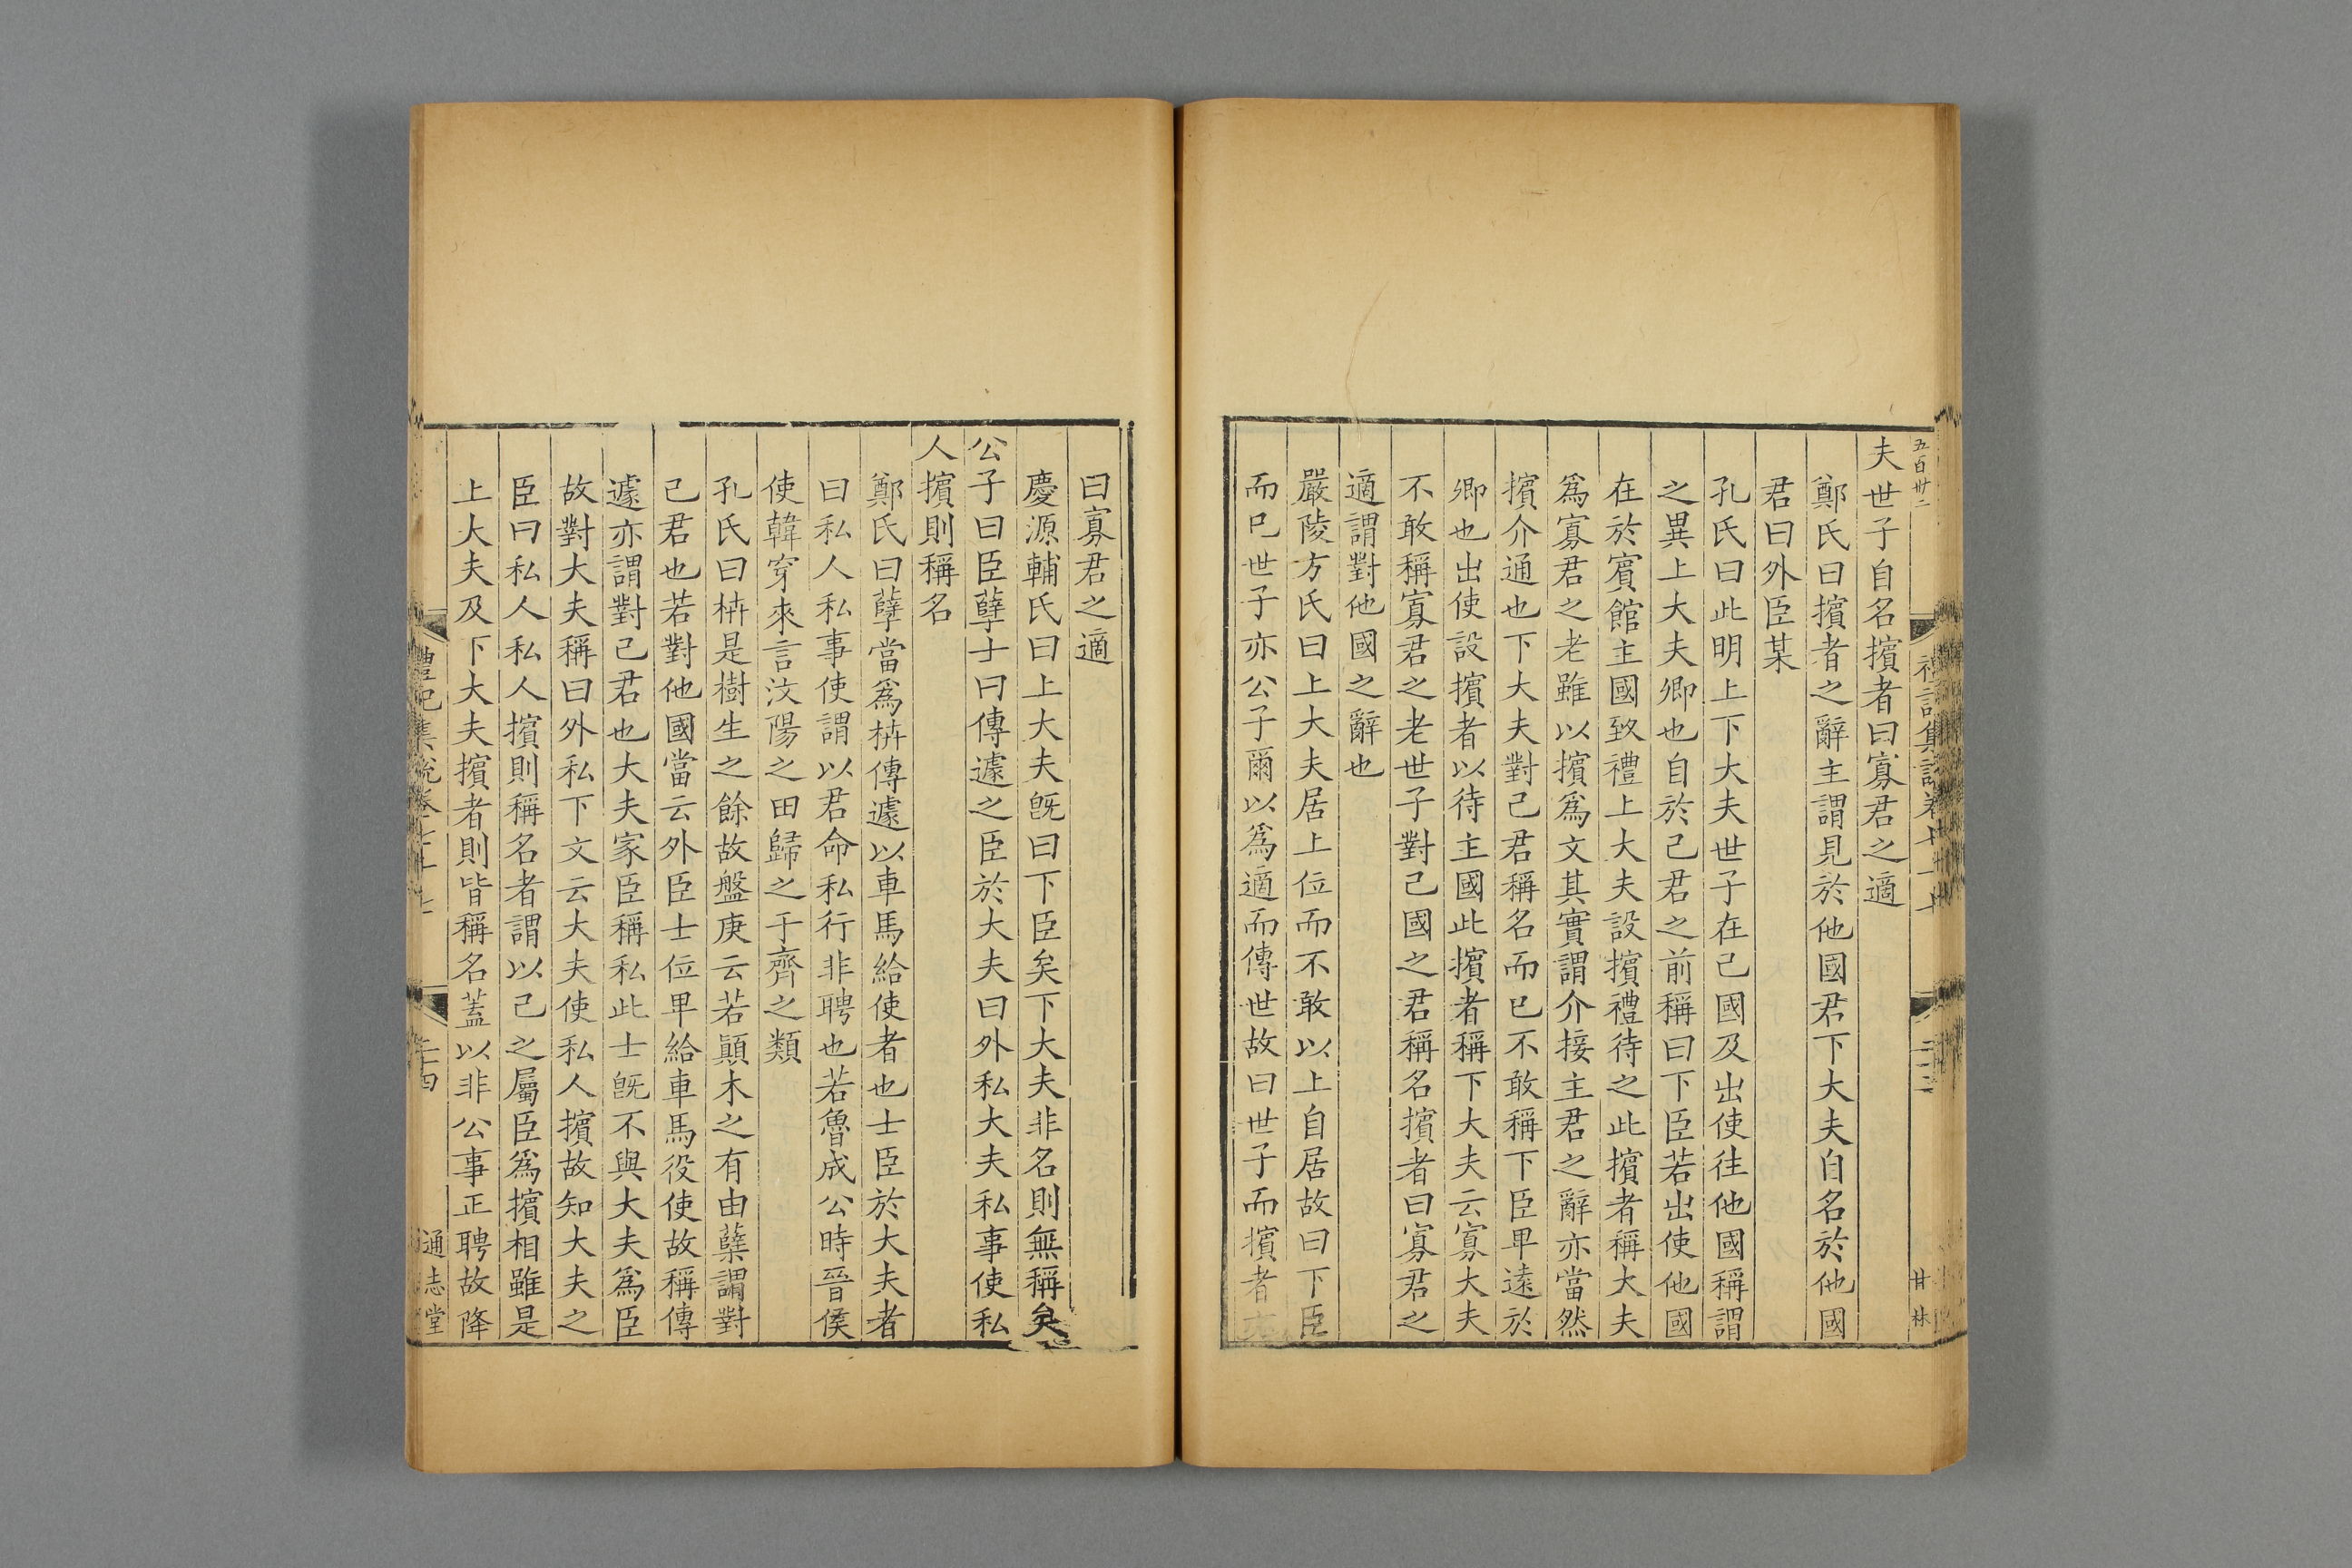 五百卅二
禮記集說卷七十七
二十三
甘林
夫世子自名擯者曰寡君之適
鄭氏曰擯者之辭主謂見於他國君下大夫自名於他國
君曰外臣某
孔氏曰此明上下大夫世子在己國及出使往他國稱謂
之異上大夫卿也自於己君之前稱曰下臣若出使他國
在於賓館主國致禮上大夫設擯禮待之此擯者稱大夫
爲寡君之老雖以擯爲文其實謂介接主君之辭亦當然
擯介通也下大夫對己君稱名而已不敢稱下臣卑遠於
卿也出使設擯者以待主國此擯者稱下大夫云寡大夫
不敢稱寡君之老世子對己國之君稱名擯者曰寡君之
適謂對他國之辭也
嚴陵方氏曰上大夫居上位而不敢以上自居故曰下臣
而已世子亦公子爾以爲適而傳世故曰世子而擯者
曰寡君之適
慶源輔氏曰上大夫旣曰下臣矣下大夫非名則無稱矣
公子曰臣孽士曰傳遽之臣於大夫曰外私大夫私事使私
人擯則稱名
鄭氏曰孽當爲枿傳遽以車馬給使者也士臣於大夫者
曰私人私事使謂以君命私行非聘也若魯成公時晉侯
使韓穿來言汶陽之田歸之于齊之類
孔氏曰枿是樹生之餘故盤庚云若顚木之有由蘖謂對
己君也若對他國當云外臣士位卑給車馬役使故稱傳
遽亦謂對己君也大夫家臣稱私此士旣不與大夫爲臣
故對大夫稱曰外私下文云大夫使私人擯故知大夫之
臣曰私人私人擯則稱名者謂以己之屬臣爲擯相雖是
上大夫及下大夫擯者則皆稱名蓋以非公事正聘故降
禮記集說卷七十七
二十四
通志堂